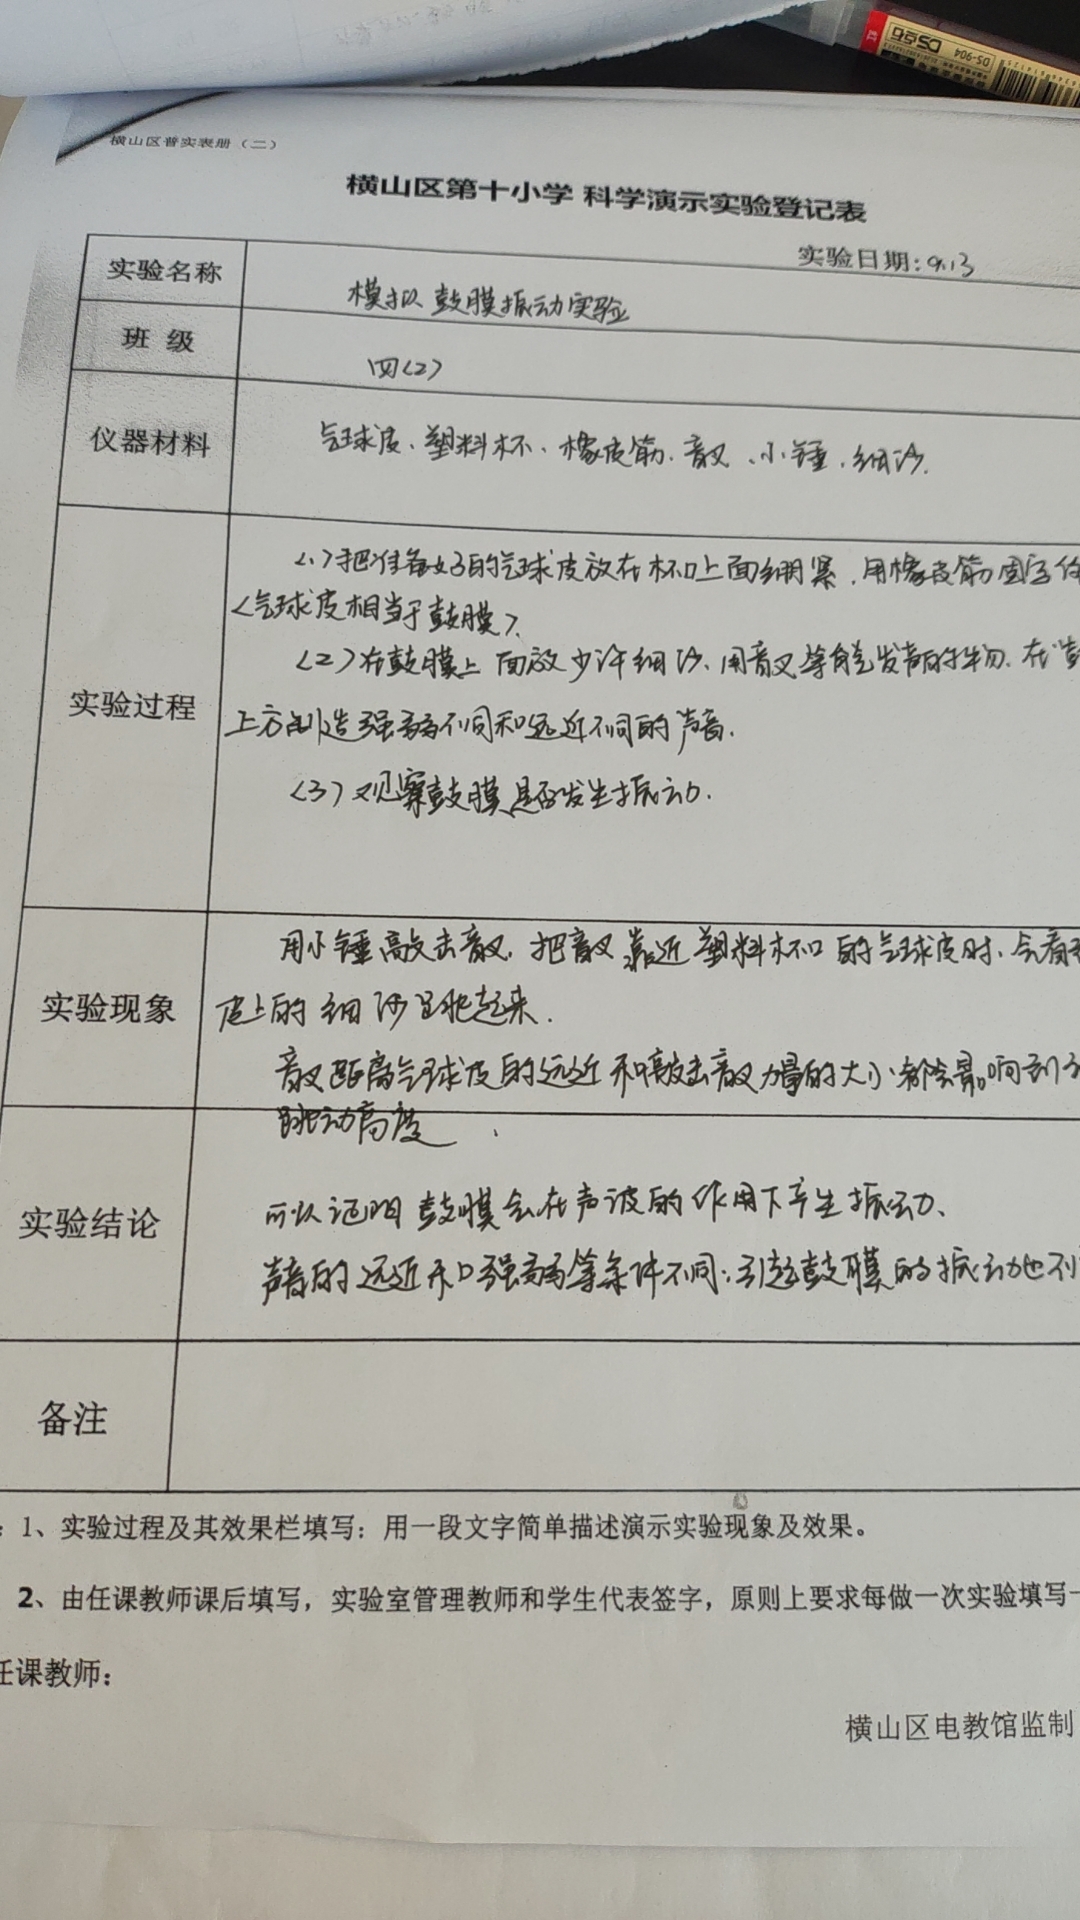 DS-904
横山区普实表册（二）
横山区第十小学 科学演示实验登记表
实验日期: 9.13
实验名称
模拟鼓膜振动实验
班 级
四（2）
仪器材料
气球皮、塑料杯、橡皮筋、音叉、小锤、细沙.
实验过程
（1.）把准备好的气球皮放在杯口上面绷紧，用橡皮筋固定住
（气球皮相当于鼓膜）.
（2）在鼓膜上面放少许细沙、用音叉等能发声的物、在鼓
上方制造强弱不同和远近不同的声音.
（3）观察鼓膜是否发生振动.
实验现象
用小锤敲击音叉，把音叉靠近塑料杯口的气球皮时、会看到
皮上的细沙
起来.
音叉距离气球皮的远近和敲击音叉力量的大小都会影响到
跳动高度
实验结论
可以证明鼓膜会在声波的作用下产生振动、
声音的远近和强弱等条件不同；引起鼓膜的振动也不
备注
：1、实验过程及其效果栏填写：用一段文字简单描述演示实验现象及效果。
2、由任课教师课后填写，实验室管理教师和学生代表签字，原则上要求每做一次实验填写一
任课教师：
横山区电教馆监制